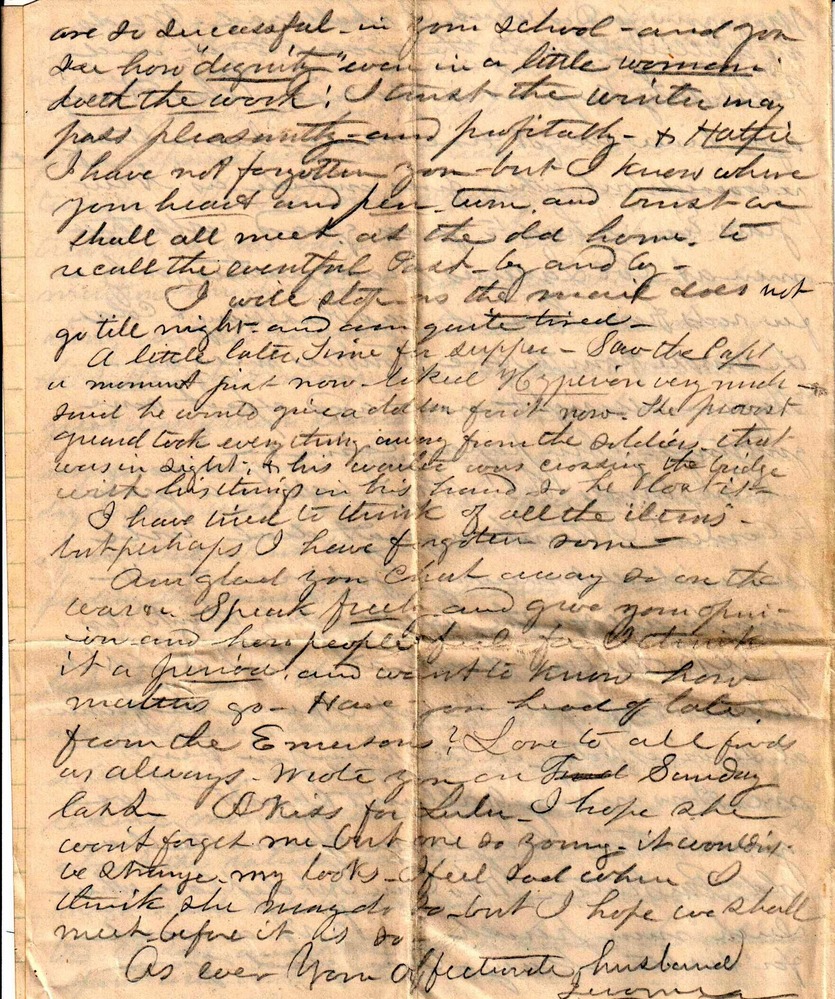 are so successful in your school - and you
see how "dignity" even in a little woman
doeth the work! I trust the winter may
pass pleasantly and profitably - & Hattie
I have not forgotten you but I know where
your heart and pen turn, and trust we
shall all meet at the old home, to
recall the eventful Past - by and by -
I will stop as the mail does not
go till night and am quite tired -
A little later. Time for supper - Saw the Capt
a moment just now - liked Hyperion very much -
said he would give a dollar for it now. The provost
guard took everything away from the soldiers that
was in sight, & his was crossing the bridge
with his things in his hand so he lost it -
I have tried to think of all the items -
but perhaps I have forgotten some -
Am glad you chat away so on the
war. Speak freely and give your opin-
ion and how people feel, for I think
it a period, and want to know how
matters go - Have you heard of late
from the Emersons? Love to all
as always. Wrote you on Sunday
last. A kiss for Lulu - I hope she
wont forget me - but one so young - it wouldnt
be strange, my looks - I feel sad when I
think she may do so - but I hope we shall
meet before it is so -
As ever Your affectionate husband